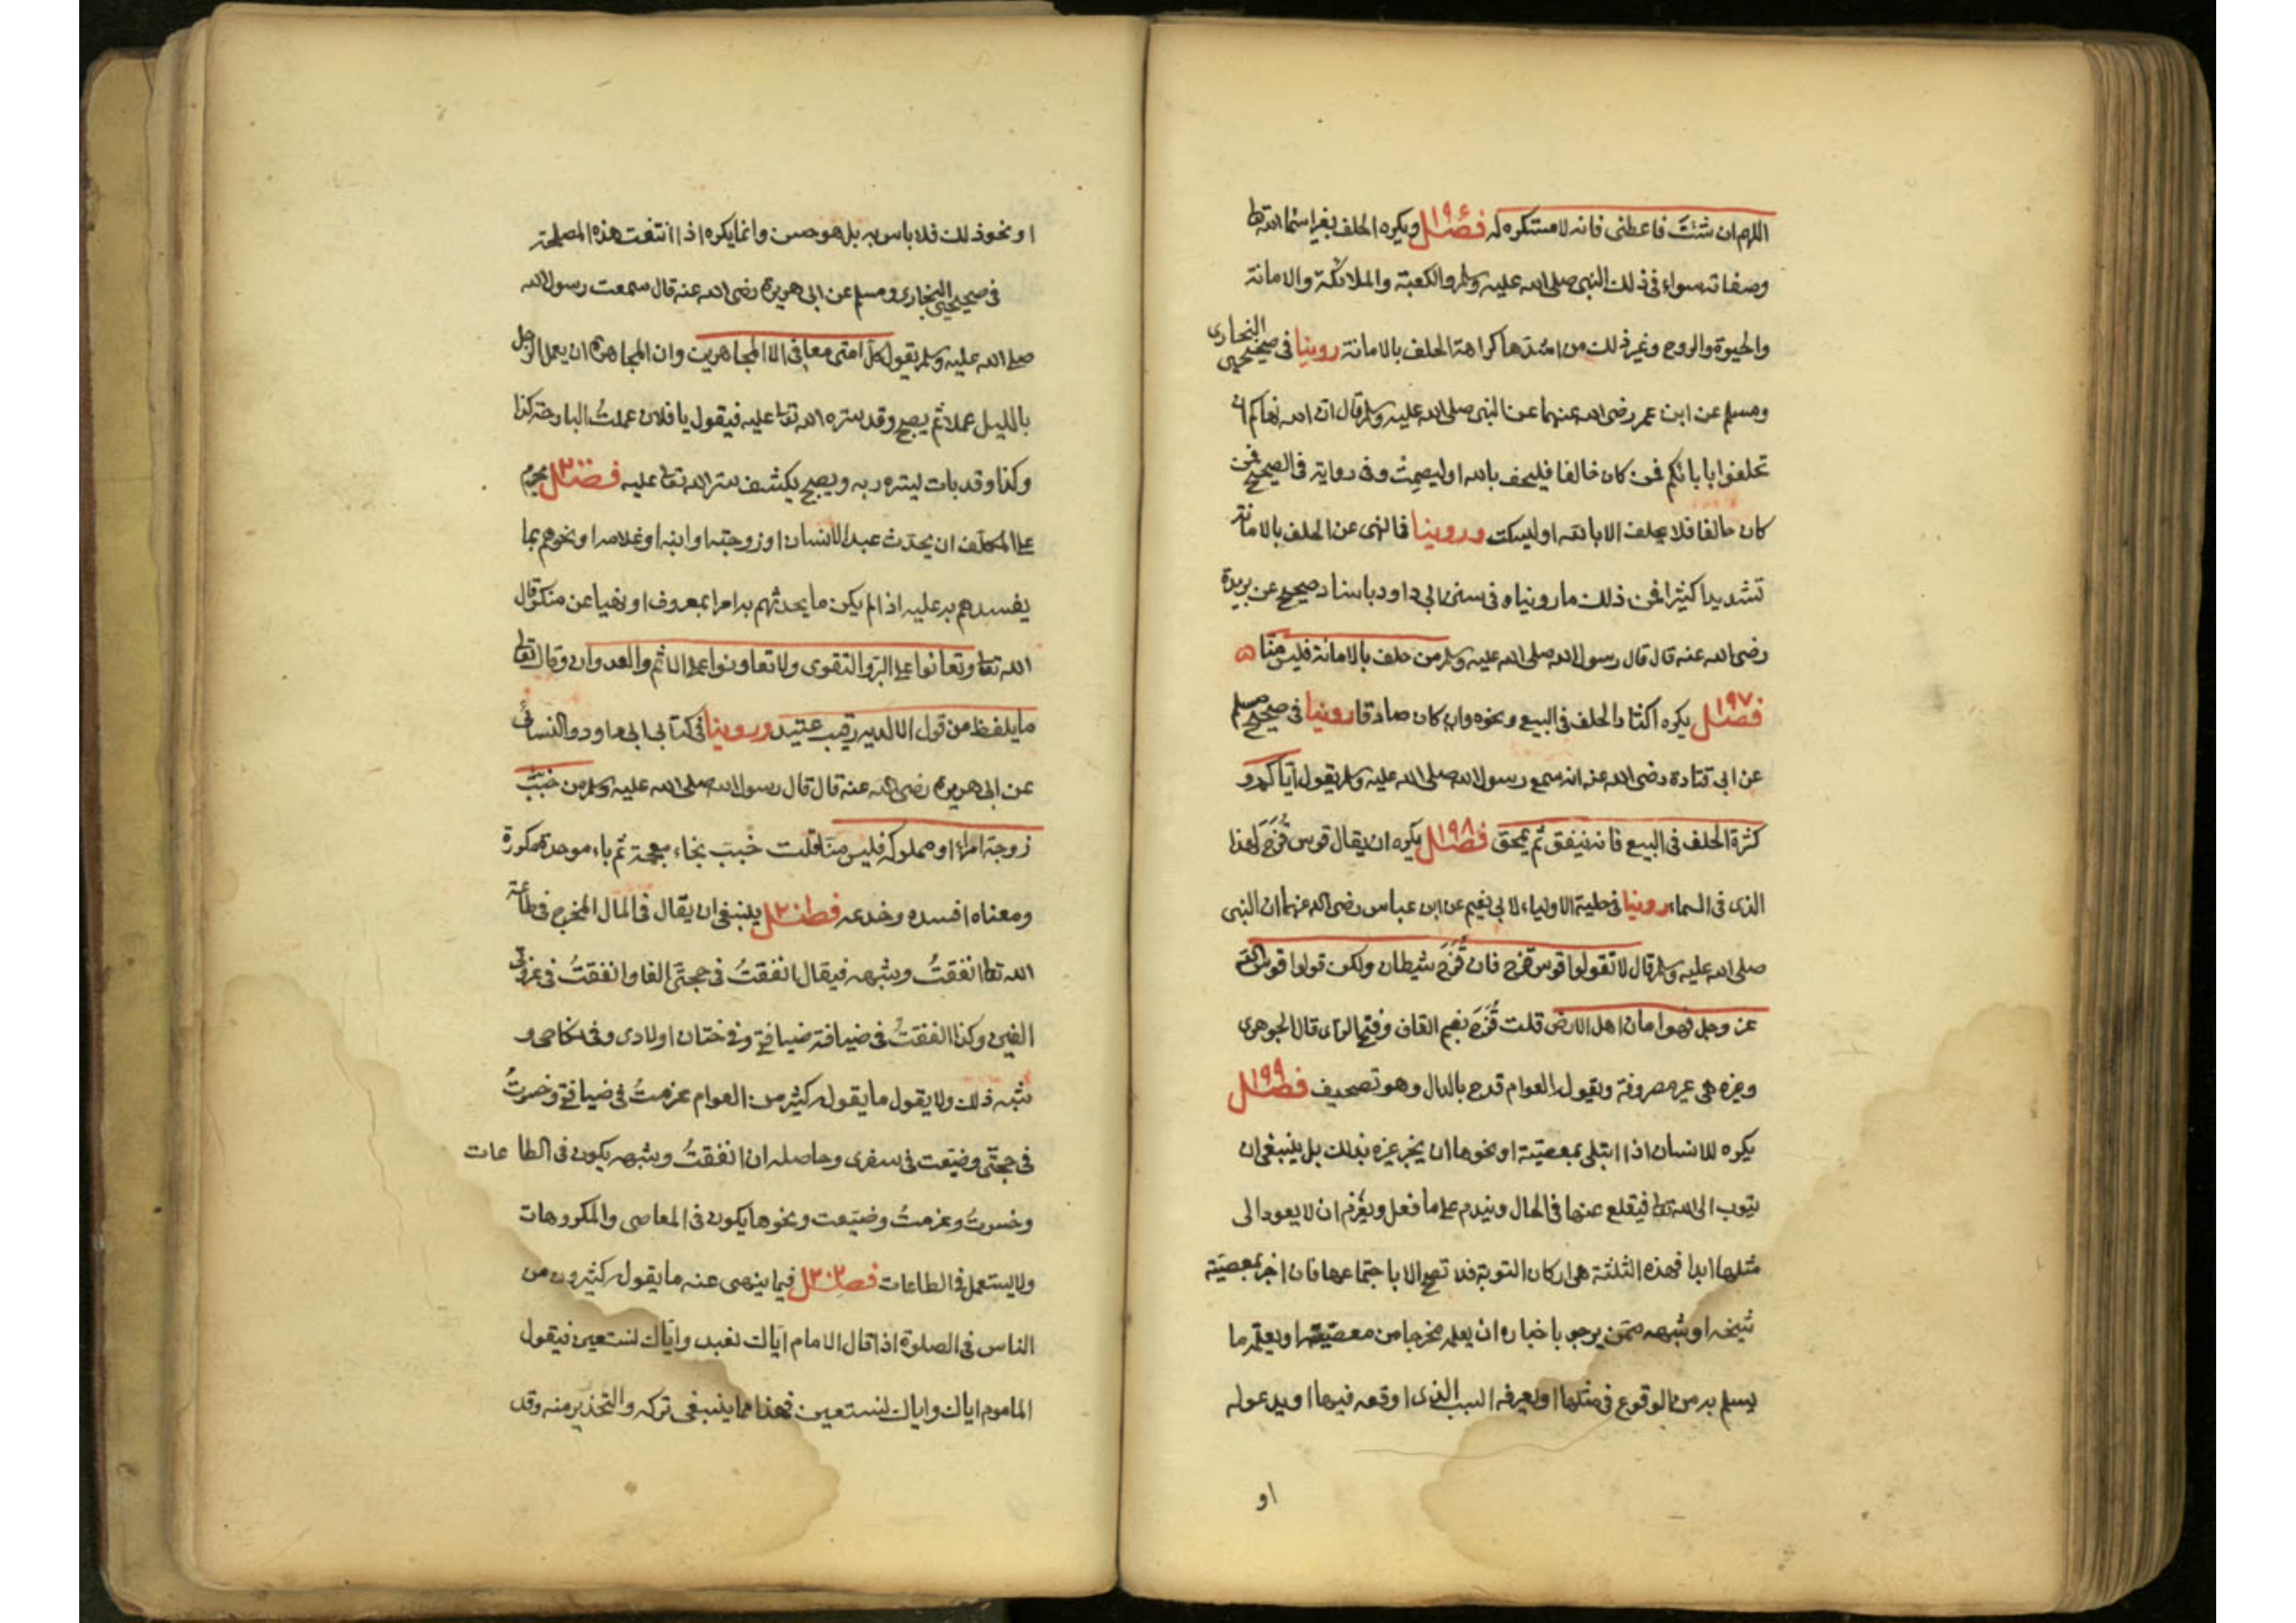 اللهم ان شئت فاعطنى فانه لا مستكره له فصل ١٩٦ ويكره الحلف بغير اسماء الله تعا
وصفاته سواء فى ذلك النبى صلى الله عليه وسلم والكعبة والملائكة والامانة
والحيوة والروح وغير ذلك من اشدها كراهة الحلف بالامانة روينا فى صحيحى البخارى
ومسلم عن ابن عمر رضى الله عنهما عن النبى صلى الله عليه وسلم قال ان الله نهاكم ان
تحلفوا بابائكم فمن كان حالفا فليحف بالله اوليصمت وفى رواية فى الصحيح فمن
كان حالفا فلا يحلف الا بالله اوليسكت وروينا فا لنهى عن الحلف بالامانة
تشديدا كثيرا فمن ذلك ما رويناه فى سنن ابى داود باسناد صحيح عن بريدة
رضى الله عنه قال قال رسول الله صلى الله عليه وسلم من حلف بالامانة فليس منا
فصل ١٩٧ يكره اكثار الحلف فى البيع ونحوه وان كان صادقا روينا فى صحيح مسلم
عن ابى قتادة رضى الله عنه انه سمع رسول الله صلى الله عليه وسلم يقول اياكم و
كثرة الحلف فى البيع فانه ينفق ثم يمحق فصل ١٩٨ يكره ان يقال قوس قُزَح لهذا
الذى فى السماء روينا فى حلية الاولياء لابى نعيم عن ابن عباس رضى الله عنهما ان النبى
صلى الله عليه وسلم قال لا تقولوا قوس قزح فان قُزَح شيطان ولكن قولوا قوس الله
عز وجل فهو امان اهل الارض قلت قُزَح بضم القاف وفتح الزاى قال الجوهرى
وغيره هى غير مصروفة ويقول العوام قدح بالدال وهو تصحيف فصل ١٩٩
يكره للانسان اذا ابتلى بمعصية او نحوها ان يخبر غيره بذلك بل ينبغى ان
يتوب الى الله تعا فيقلع عنها فى الحال ويندم على ما فعل ويعزم ان لا يعود الى
مثلها ابدا فهذه الثلثة هى اركان التوبة فلا تصح الا باجتماعها فان اخبر بمعصية
شيخه او شبهه ممن يرجو باخباره ان يعلمه مخرجا من معصيته او يعلمه ما
يسلم به من الوقوع فى مثلها او يعرفه السبب الذى اوقعه فيها او يدعو له
او
او نحو ذلك فلا باس به بل هو حسن وانما يكره اذا انتفت هذه المصلحة
فى صحيحى البخارى ومسلم عن ابى هريرة رضى الله عنه قال سمعت رسول الله
صلى الله عليه وسلم يقول كل امتى معافى الا المجاهرين وان المجاهرة ان يعمل الرجل
بالليل عملا ثم يصبح وقد ستره الله تعا عليه فيقول يا فلان عملتُ البارحة كذا
وكذا وقد بات يستره ربه ويصبح يكشف ستر الله تعا عليه فصل ٢٠٠ يحرم
على المكلف ان يحدث عبد الانسان او زوجته او ابنه او غلامه او نحوهم بما
يفسدهم به عليه اذا لم يكن ما يحدثهم به امرا بمعروف او نهيا عن منكر قال
الله تعا وتعانوا على البر والتقوى ولا تعاونوا على الاثم والعدوان وقال تعا
ما يلفظ من قول الا لديه رقيب عتيد وروينا فى كتابى ابى داود والنسائى
عن ابى هريرة رضى الله عنه قال قال رسول الله صلى الله عليه وسلم من خبّب
زوجة امرء او مملوكه فليس منا قلت خبب بخاء معجمة ثم باء موحدة مكررة
ومعناه افسده وخدعه فصل ٢٠١ ينبغى ان يقال فى المال المخرج فى طاعة
الله تعا انفقتُ وشبهه فيقال انفقتُ فى حجتى الفا وانفقتُ فى غزوتى
الفين وكذا انفقتُ فى ضيافة ضيافتى وفى ختان اولادى وفى نكاحى و
شبه ذلك ولا يقول ما يقوله كثير من العوام غرمتُ فى ضيافتى وخسرتُ
فى حجتى وضيعت فى سفرى وحاصله ان انفقتُ وشبهه يكون فى الطاعات
وخسرتُ وغرمتُ وضيعت ونحوها يكون فى المعاصى والمكروهات
ولا يستعمل فى الطاعات فصل ٢٠٢ فيما ينهى عنه ما يقوله كثيرون من
الناس فى الصلوة اذا قال الامام اياك نعبد واياك نستعين فيقول
الماموم اياك واياك نستعين فهذا مما ينبغى تركه والتحذير منه وقد